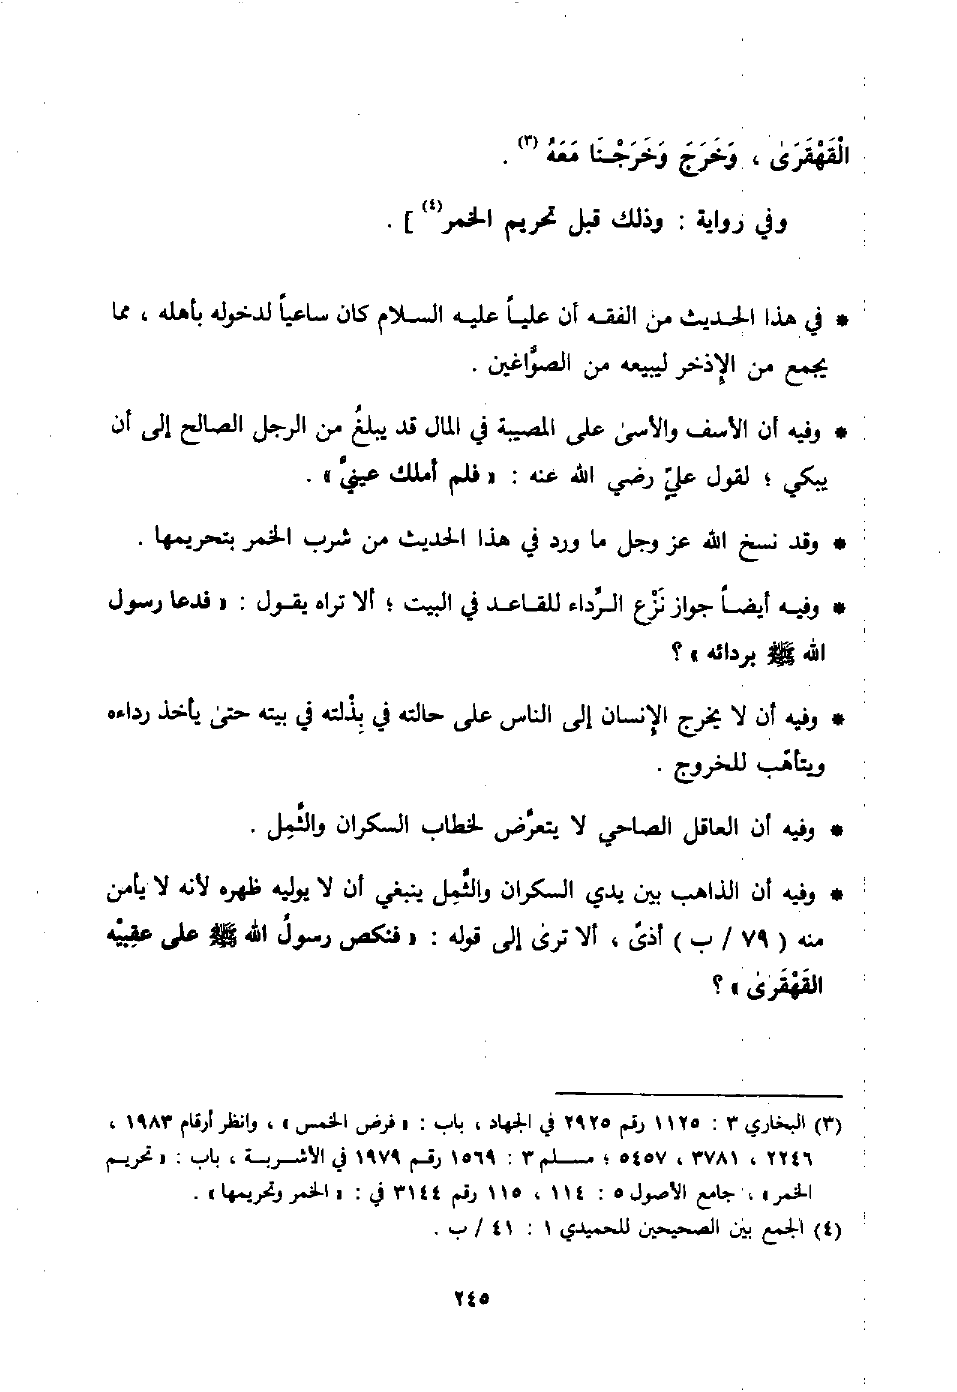 الْقَهْقَرَىٰ ، وَخَرَجَ وَخَرَجْنَا مَعَهُ (٣) .
وفي رواية : وذلك قبل تحريم الخمر(٤) ] .
* في هذا الحديث من الفقه أن علياً عليه السلام كان ساعياً لدخوله بأهله ، مما
يجمع من الإذخر ليبيعه من الصوَّاغين .
* وفيه أن الأسف والأسىٰ على المصيبة في المال قد يبلغُ من الرجل الصالح إلى أن
يبكي ؛ لقول عليّ رضي الله عنه : « فلم أملك عينيَّ » .
* وقد نسخ الله عز وجل ما ورد في هذا الحديث من شرب الخمر بتحريمها .
* وفيه أيضاً جواز نَزْع الرِّداء للقاعد في البيت ؛ ألا تراه يقول : « فدعا رسول
الله ﷺ بردائه » ؟
* وفيه أن لا يخرج الإنسان إلى الناس على حالته في بِذْلته في بيته حتىٰ يأخذ رداءه
ويتأهّب للخروج .
* وفيه أن العاقل الصاحي لا يتعرَّض لخطاب السكران والثَّمِل .
* وفيه أن الذاهب بين يدي السكران والثَّمِل ينبغي أن لا يوليه ظهره لأنه لا يأمن
منه ( ٧٩ / ب ) أذىً ، ألا ترىٰ إلى قوله : « فنكص رسولُ الله ﷺ على عقِبيْه
القَهْقَرىٰ » ؟
(٣) البخاري ٣ : ١١٢٥ رقم ٢٩٢٥ في الجهاد ، باب : « فرض الخمس » ، وانظر أرقام ١٩٨٣ ،
٢٢٤٦ ، ٣٧٨١ ، ٥٤٥٧ ؛ مسلم ٣ : ١٥٦٩ رقم ١٩٧٩ في الأشربة ، باب : « تحريم
الخمر » ، جامع الأصول ٥ : ١١٤ ، ١١٥ رقم ٣١٤٤ في : « الخمر وتحريمها » .
(٤) الجمع بين الصحيحين للحميدي ١ : ٤١ / ب .
٢٤٥